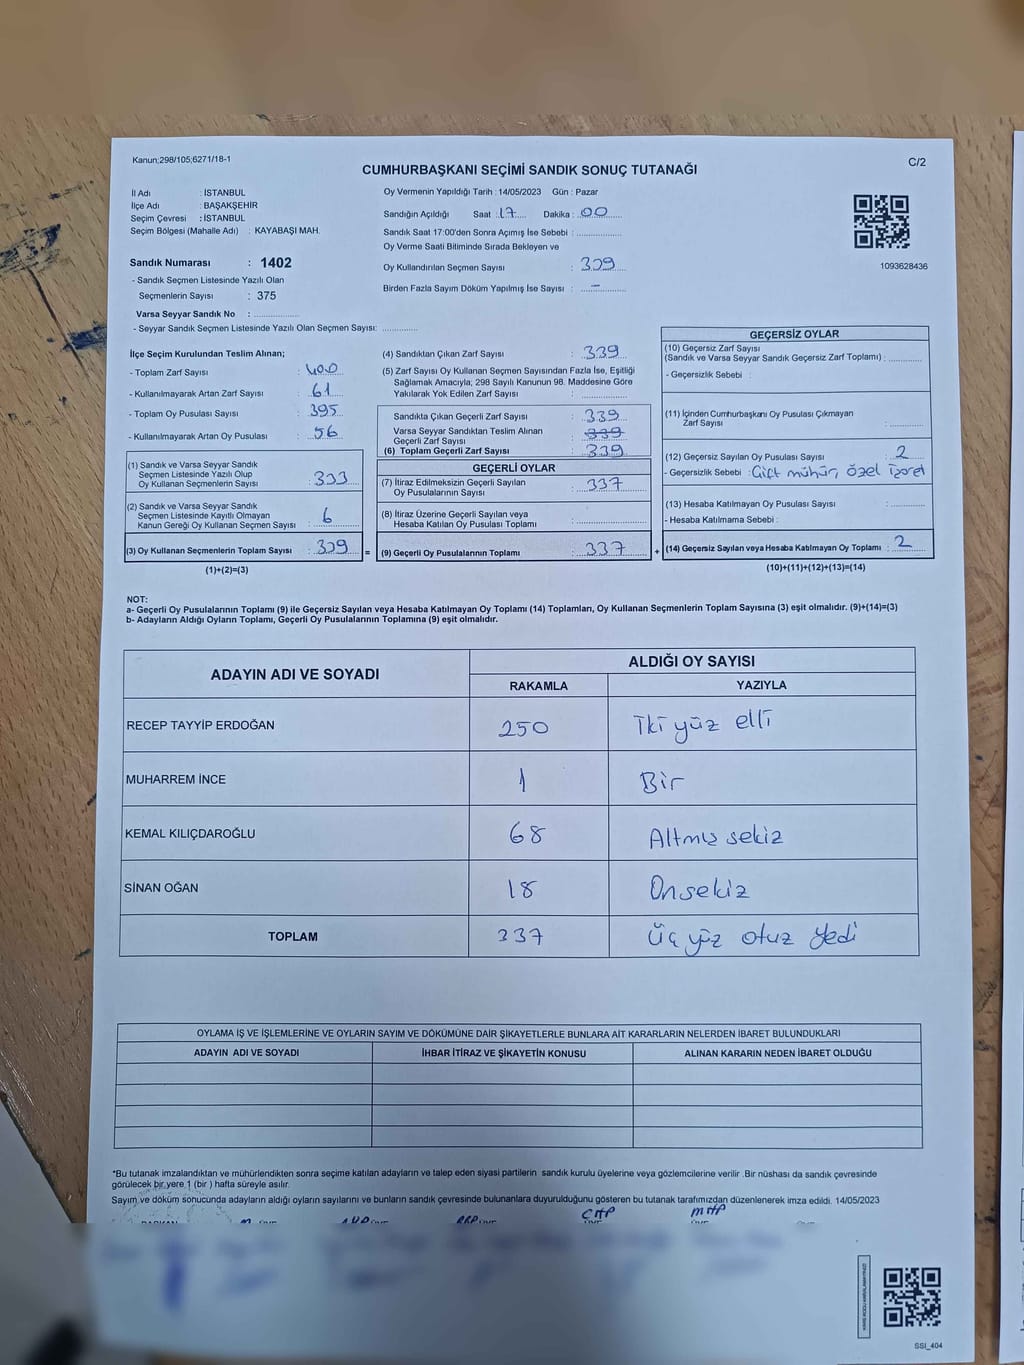 Kanun;298/105;6271/18-1
C/2
CUMHURBAŞKANI SEÇİMİ SANDIK SONUÇ TUTANAĞI
İl Adı : İSTANBUL
İlçe Adı : BAŞAKŞEHİR
Seçim Çevresi : İSTANBUL
Seçim Bölgesi (Mahalle Adı) : KAYABAŞI MAH.
Sandık Numarası : 1402
- Sandık Seçmen Listesinde Yazılı Olan
Seçmenlerin Sayısı : 375
Varsa Seyyar Sandık No :
- Seyyar Sandık Seçmen Listesinde Yazılı Olan Seçmen Sayısı:
Oy Vermenin Yapıldığı Tarih : 14/05/2023 Gün : Pazar
Sandığın Açıldığı Saat : 17 Dakika : 00
Sandık Saat 17:00'den Sonra Açımış İse Sebebi :
Oy Verme Saati Bitiminde Sırada Bekleyen ve
Oy Kullandırılan Seçmen Sayısı : 339
Birden Fazla Sayım Döküm Yapılmış İse Sayısı : -
1093628436
İlçe Seçim Kurulundan Teslim Alınan;
- Toplam Zarf Sayısı : 400
- Kullanılmayarak Artan Zarf Sayısı : 61
- Toplam Oy Pusulası Sayısı : 395
- Kullanılmayarak Artan Oy Pusulası : 56
(1) Sandık ve Varsa Seyyar Sandık
Seçmen Listesinde Yazılı Olup
Oy Kullanan Seçmenlerin Sayısı : 333
(2) Sandık ve Varsa Seyyar Sandık
Seçmen Listesinde Kayıtlı Olmayan
Kanun Gereği Oy Kullanan Seçmen Sayısı : 6
(3) Oy Kullanan Seçmenlerin Toplam Sayısı : 339 =
(1)+(2)=(3)
(4) Sandıktan Çıkan Zarf Sayısı : 339
(5) Zarf Sayısı Oy Kullanan Seçmen Sayısından Fazla İse, Eşitliği
Sağlamak Amacıyla; 298 Sayılı Kanunun 98. Maddesine Göre
Yakılarak Yok Edilen Zarf Sayısı :
Sandıkta Çıkan Geçerli Zarf Sayısı : 339
Varsa Seyyar Sandıktan Teslim Alınan
Geçerli Zarf Sayısı : 339
(6) Toplam Geçerli Zarf Sayısı : 339
GEÇERLİ OYLAR
(7) İtiraz Edilmeksizin Geçerli Sayılan
Oy Pusulalarının Sayısı : 337
(8) İtiraz Üzerine Geçerli Sayılan veya
Hesaba Katılan Oy Pusulası Toplamı :
(9) Geçerli Oy Pusulalarının Toplamı : 337 +
GEÇERSİZ OYLAR
(10) Geçersiz Zarf Sayısı
(Sandık ve Varsa Seyyar Sandık Geçersiz Zarf Toplamı) :
- Geçersizlik Sebebi :
(11) İçinden Cumhurbaşkanı Oy Pusulası Çıkmayan
Zarf Sayısı :
(12) Geçersiz Sayılan Oy Pusulası Sayısı : 2
- Geçersizlik Sebebi : Çift mühür, özel işaret
(13) Hesaba Katılmayan Oy Pusulası Sayısı :
- Hesaba Katılmama Sebebi :
(14) Geçersiz Sayılan veya Hesaba Katılmayan Oy Toplamı : 2
(10)+(11)+(12)+(13)=(14)
NOT:
a- Geçerli Oy Pusulalarının Toplamı (9) ile Geçersiz Sayılan veya Hesaba Katılmayan Oy Toplamı (14) Toplamları, Oy Kullanan Seçmenlerin Toplam Sayısına (3) eşit olmalıdır. (9)+(14)=(3)
b- Adayların Aldığı Oyların Toplamı, Geçerli Oy Pusulalarının Toplamına (9) eşit olmalıdır.
ADAYIN ADI VE SOYADI
ALDIĞI OY SAYISI
RAKAMLA YAZIYLA
RECEP TAYYİP ERDOĞAN 250 İki yüz elli
MUHARREM İNCE 1 Bir
KEMAL KILIÇDAROĞLU 68 Altmış sekiz
SİNAN OĞAN 18 Onsekiz
TOPLAM 337 Üç yüz otuz yedi
OYLAMA İŞ VE İŞLEMLERİNE VE OYLARIN SAYIM VE DÖKÜMÜNE DAİR ŞİKAYETLERLE BUNLARA AİT KARARLARIN NELERDEN İBARET BULUNDUKLARI
ADAYIN ADI VE SOYADI İHBAR İTİRAZ VE ŞİKAYETİN KONUSU ALINAN KARARIN NEDEN İBARET OLDUĞU
*Bu tutanak imzalandıktan ve mühürlendikten sonra seçime katılan adayların ve talep eden siyasi partilerin sandık kurulu üyelerine veya gözlemcilerine verilir .Bir nüshası da sandık çevresinde
görülecek bir yere 1 (bir ) hafta süreyle asılır.
Sayım ve döküm sonucunda adayların aldığı oyların sayılarını ve bunların sandık çevresinde bulunanlara duyurulduğunu gösteren bu tutanak tarafımızdan düzenlenerek imza edildi. 14/05/2023
CHP MHP
SSI_404